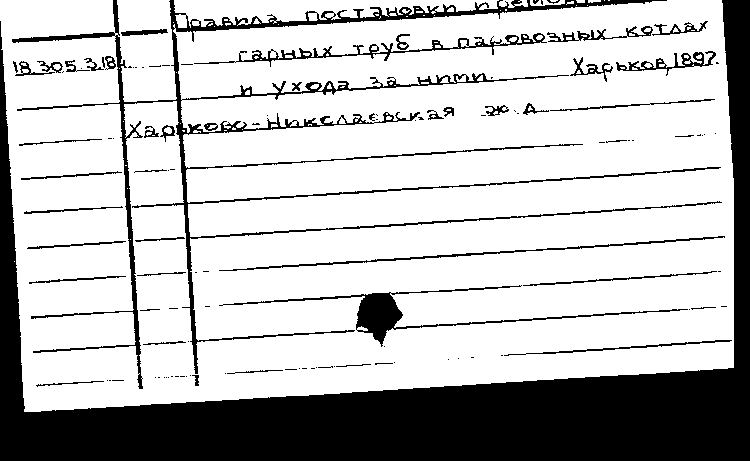 Правила постановки
18.305.3.184. гарных труб в паровозных котлах
и ухода за ними. Харьков, 1897.
Харьково-Николаевская ж.д.